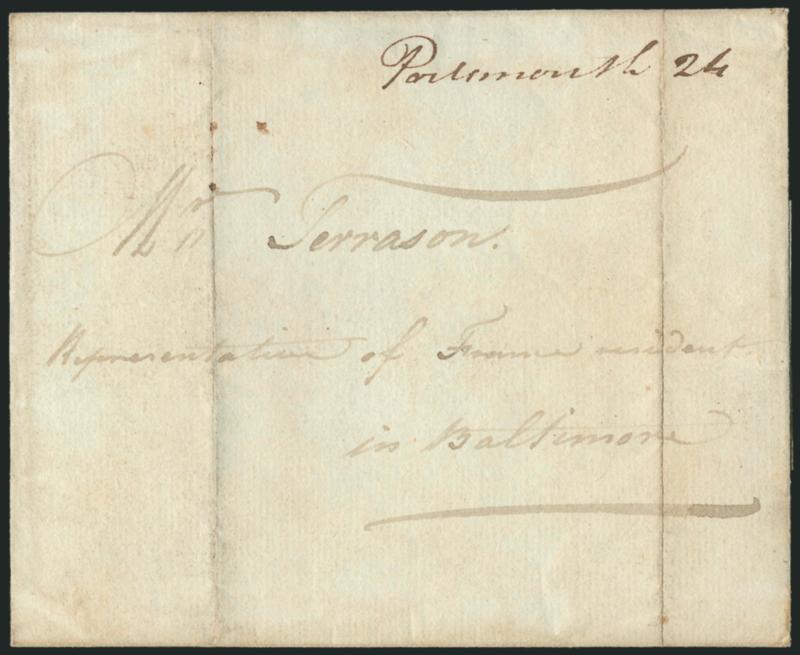 Portsmouth 24
Mr Terrason.
Representative of France resident
in Baltimore